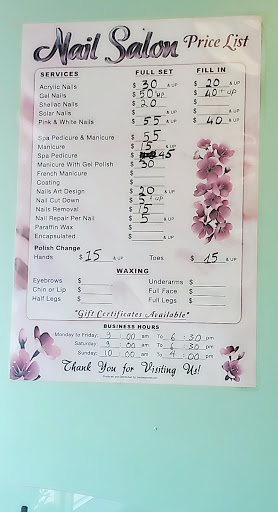 Nail Salon Price List
SERVICES FULL SET FULL IN
Acrylic Nails $ 30 & UP $ 20 & UP
Gel Nails $ 50 UP $ 40 + UP
Shellac Nails $ 20 $ & UP
Solar Nails $ & UP $ & UP
Pink & White Nails $ 55 & UP $ 40 & UP
Spa Pedicure & Manicure $ 55
Manicure $ 15 & UP
Spa Pedicure $ 45
Manicure With Gel Polish $ 30
French Manicure $
Coating $
Nails Art Design $ 20 & UP
Nail Cut Down $ 5 & UP
Nails Removal $ 15
Nail Repair Per Nail $ 5 & UP
Paraffin Wax $
Encapsulated $ & UP
Polish Change
Hands $ 15 & UP Toes $ 15 & UP
WAXING
Eyebrows $ Underarms $
Chin or Lip $ Full Face $
Half Legs $ Full Legs $
"Gift Certificates Available"
BUSINESS HOURS
Monday to Friday: 9 : 00 am To 6 : 30 pm
Saturday: 9 : 00 am To 6 : 30 pm
Sunday: 10 : 00 am To 4 : 00 pm
Thank You for Visiting Us!